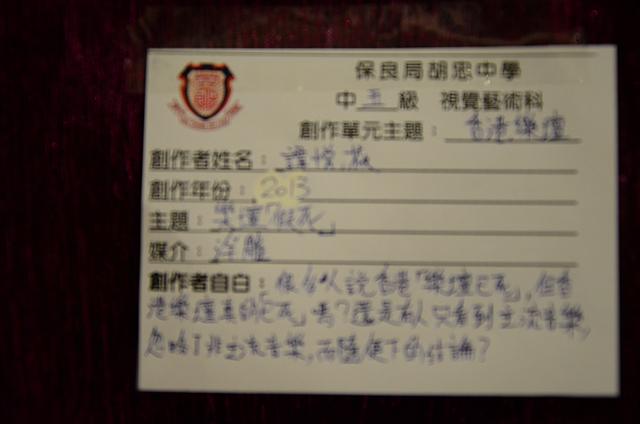 保良局胡忠中學
中 五 級 視覺藝術科
創作單元主題： 香港樂壇
創作者姓名： 譚悅
創作年份： 2013
主題： 樂壇「假死」
媒介： 浮雕
創作者自白： 很多人說香港「樂壇已死」，但香
港樂壇真的「已死」嗎？還是有人只看到主流音樂，
忽略了非主流音樂，而隨便下的結論？